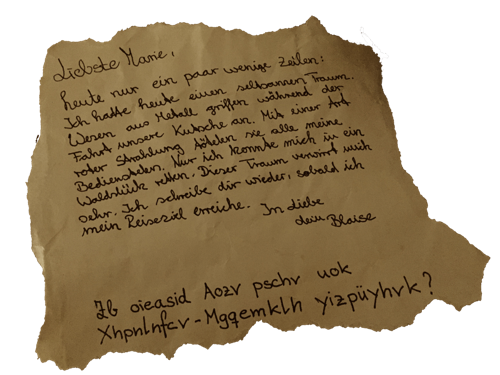 Liebste Marie,
heute nur ein paar wenige Zeilen:
Ich hatte heute einen seltsamen Traum.
Wesen aus Metall griffen während der
Fahrt unsere Kutsche an. Mit einer Art
roter Strahlung töteten sie alle meine
Bediensteten. Nur ich konnte mich in ein
Waldstück retten. Dieser Traum verwirrt mich
sehr. Ich schreibe dir wieder, sobald ich
mein Reiseziel erreiche.
In Liebe
dein Blaise
Zb oieasid Aozv pschv uok
Xhpnlnfcv-Mgqemklh yizpüyhvk?